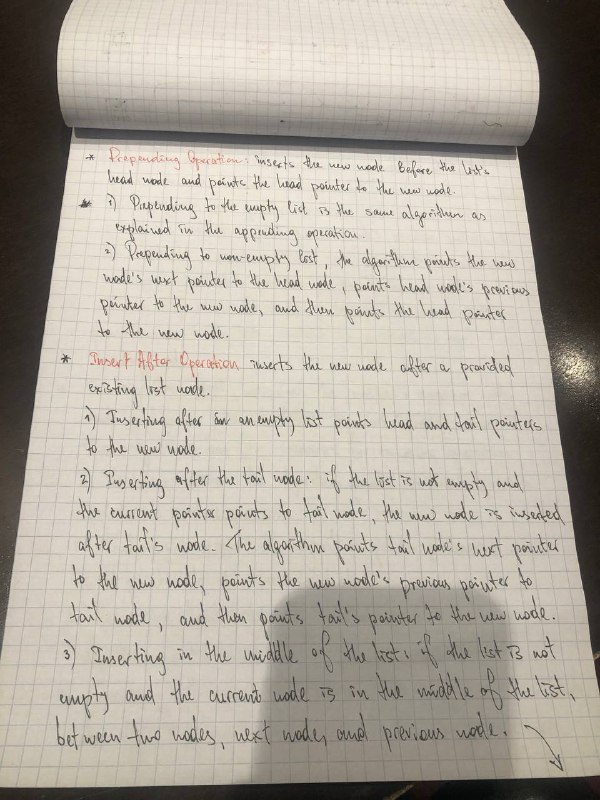 * Prepending Operation: inserts the new node before the list's
head node and points the head pointer to the new node.
* 1) Prepending to the empty list is the same algorithm as
explained in the appending operation.
2) Prepending to non-empty list, the algorithm points the new
node's next pointer to the head node, points head node's previous
pointer to the new node, and then points the head pointer
to the new node.
* Insert After Operation inserts the new node after a provided
existing list node.
1) Inserting after in an empty list points head and tail pointers
to the new node.
2) Inserting after the tail node: if the list is not empty and
the current pointer points to tail node, the new node is inserted
after tail's node. The algorithm points tail node's next pointer
to the new node, points the new node's previous pointer to
tail node, and then points tail's pointer to the new node.
3) Inserting in the middle of the list: if the list is not
empty and the current node is in the middle of the list,
between two nodes, next node, and previous node.